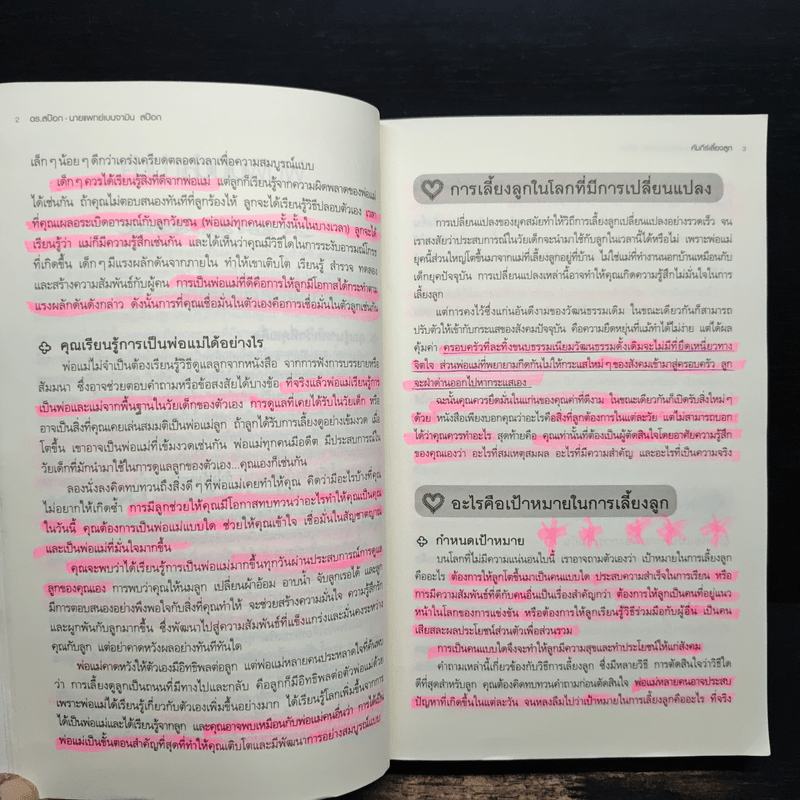 2 ดร.สป๊อก • นายแพทย์เบนจามิน สป๊อก
เล็กๆ น้อยๆ ดีกว่าเคร่งเครียดตลอดเวลาเพื่อความสมบูรณ์แบบ
เด็กๆ ควรได้เรียนรู้สิ่งที่ดีจากพ่อแม่ แต่ลูกก็เรียนรู้จากความผิดพลาดของพ่อแม่
ได้เช่นกัน ถ้าคุณไม่ตอบสนองทันทีที่ลูกร้องไห้ ลูกจะได้เรียนรู้วิธีปลอบตัวเอง เวลา
ที่คุณเผลอระเบิดอารมณ์กับลูกวัยซน (พ่อแม่ทุกคนเคยทั้งนั้นในบางเวลา) ลูกจะได้
เรียนรู้ว่า แม่ก็มีความรู้สึกเช่นกัน และได้เห็นว่าคุณมีวิธีใดในการระงับอารมณ์โกรธ
ที่เกิดขึ้น เด็กๆ มีแรงผลักดันจากภายใน ทำให้เขาเติบโต เรียนรู้ สำรวจ ทดลอง
และสร้างความสัมพันธ์กับผู้คน การเป็นพ่อแม่ที่ดีคือการให้ลูกมีโอกาสได้กระทำตาม
แรงผลักดันดังกล่าว ดังนั้นการที่คุณเชื่อมั่นในตัวเองคือการเชื่อมั่นในตัวลูกเช่นกัน
คุณเรียนรู้การเป็นพ่อแม่ได้อย่างไร
พ่อแม่ไม่จำเป็นต้องเรียนรู้วิธีดูแลลูกจากหนังสือ จากการฟังการบรรยายหรือ
สัมมนา ซึ่งอาจช่วยตอบคำถามหรือข้อสงสัยได้บางข้อ ที่จริงแล้วพ่อแม่เรียนรู้การ
เป็นพ่อและแม่จากพื้นฐานในวัยเด็กของตัวเอง การดูแลที่เคยได้รับในวัยเด็ก หรือ
อาจเป็นสิ่งที่คุณเคยเล่นสมมติเป็นพ่อแม่ลูก ถ้าลูกได้รับการเลี้ยงดูอย่างเข้มงวด เมื่อ
โตขึ้น เขาอาจเป็นพ่อแม่ที่เข้มงวดเช่นกัน พ่อแม่ทุกคนมีอดีต มีประสบการณ์ใน
วัยเด็กที่มักนำมาใช้ในการดูแลลูกของตัวเอง...คุณเองก็เช่นกัน
ลองนั่งลงคิดทบทวนถึงสิ่งดีๆ ที่พ่อแม่เคยทำให้คุณ คิดว่ามีอะไรบ้างที่คุณ
ไม่อยากให้เกิดซ้ำ การมีลูกช่วยให้คุณมีโอกาสทบทวนว่าอะไรทำให้คุณเป็นคุณ
ในวันนี้ คุณต้องการเป็นพ่อแม่แบบใด ช่วยให้คุณเข้าใจ เชื่อมั่นในสัญชาตญาณ
และเป็นพ่อแม่ที่มั่นใจมากขึ้น
คุณจะพบว่าได้เรียนรู้การเป็นพ่อแม่มากขึ้นทุกวันผ่านประสบการณ์การดูแล
ลูกของคุณเอง การพบว่าคุณให้นมลูก เปลี่ยนผ้าอ้อม อาบน้ำ จับลูกเรอได้ และลูก
มีการตอบสนองอย่างพึงพอใจกับสิ่งที่คุณทำให้ จะช่วยสร้างความมั่นใจ ความรู้สึกรัก
และผูกพันกับลูกมากขึ้น ซึ่งพัฒนาไปสู่ความสัมพันธ์ที่แข็งแกร่งและมั่นคงระหว่าง
คุณกับลูก แต่อย่าคาดหวังผลอย่างทันทีทันใด
พ่อแม่คาดหวังให้ตัวเองมีอิทธิพลต่อลูก แต่พ่อแม่หลายคนประหลาดใจที่ค้นพบ
ว่า การเลี้ยงดูลูกเป็นถนนที่มีทางไปและกลับ คือลูกก็มีอิทธิพลต่อตัวพ่อแม่ด้วย
เพราะพ่อแม่ได้เรียนรู้เกี่ยวกับตัวเองเพิ่มขึ้นอย่างมาก ได้เรียนรู้โลกเพิ่มขึ้นจากการ
ได้เป็นพ่อแม่และได้เรียนรู้จากลูก และคุณอาจพบเหมือนกับพ่อแม่คนอื่นว่า การได้เป็น
พ่อแม่เป็นขั้นตอนสำคัญที่สุดที่ทำให้คุณเติบโตและมีพัฒนาการอย่างสมบูรณ์แบบ
คัมภีร์เลี้ยงลูก 3
การเลี้ยงลูกในโลกที่มีการเปลี่ยนแปลง
การเปลี่ยนแปลงของยุคสมัยทำให้วิถีการเลี้ยงลูกเปลี่ยนแปลงอย่างรวดเร็ว จน
เราสงสัยว่าประสบการณ์ในวัยเด็กจะนำมาใช้กับลูกในเวลานี้ได้หรือไม่ เพราะพ่อแม่
ยุคนี้ส่วนใหญ่โตขึ้นมาจากแม่ที่เลี้ยงลูกอยู่ที่บ้าน ไม่ใช่แม่ที่ทำงานนอกบ้านเหมือนกับ
เด็กยุคปัจจุบัน การเปลี่ยนแปลงเหล่านี้อาจทำให้คุณเกิดความรู้สึกไม่มั่นใจในการ
เลี้ยงลูก
แต่การคงไว้ซึ่งแก่นอันดีงามของวัฒนธรรมเดิม ในขณะเดียวกันก็สามารถ
ปรับตัวให้เข้ากับกระแสของสังคมปัจจุบัน คือความยืดหยุ่นที่แม้ทำได้ไม่ง่าย แต่ได้ผล
คุ้มค่า ครอบครัวที่ละทิ้งขนบธรรมเนียมวัฒนธรรมดั้งเดิมจะไม่มีที่ยึดเหนี่ยวทาง
จิตใจ ส่วนพ่อแม่ที่พยายามกีดกันไม่ให้กระแสใหม่ๆ ของสังคมเข้ามาสู่ครอบครัว ลูก
จะฝ่าด่านออกไปหากระแสเอง
ฉะนั้นคุณควรยึดมั่นในแก่นของคุณค่าที่ดีงาม ในขณะเดียวกันก็เปิดรับสิ่งใหม่ๆ
ด้วย หนังสือเพียงบอกคุณว่าอะไรคือสิ่งที่ลูกต้องการในแต่ละวัย แต่ไม่สามารถบอก
ได้ว่าคุณควรทำอะไร สุดท้ายคือ คุณเท่านั้นที่ต้องเป็นผู้ตัดสินใจโดยอาศัยความรู้สึก
ของคุณเองว่า อะไรที่สมเหตุสมผล อะไรที่มีความสำคัญ และอะไรที่เป็นความจริง
อะไรคือเป้าหมายในการเลี้ยงลูก
กำหนดเป้าหมาย
บนโลกที่ไม่มีความแน่นอนใบนี้ เราอาจถามตัวเองว่า เป้าหมายในการเลี้ยงลูก
คืออะไร ต้องการให้ลูกโตขึ้นมาเป็นคนแบบใด ประสบความสำเร็จในการเรียน หรือ
การมีความสัมพันธ์ที่ดีกับคนอื่นเป็นเรื่องสำคัญกว่า ต้องการให้ลูกเป็นคนที่อยู่แนว
หน้าในโลกของการแข่งขัน หรือต้องการให้ลูกเรียนรู้วิธีร่วมมือกับผู้อื่น เป็นคน
เสียสละผลประโยชน์ส่วนตัวเพื่อส่วนรวม
การเป็นคนแบบใดจึงจะทำให้ลูกมีความสุขและทำประโยชน์ให้แก่สังคม
คำถามเหล่านี้เกี่ยวข้องกับวิธีการเลี้ยงลูก ซึ่งมีหลายวิธี การตัดสินใจว่าวิธีใด
ดีที่สุดสำหรับลูก คุณต้องคิดทบทวนคำถามก่อนตัดสินใจ พ่อแม่หลายคนอาจประสบ
ปัญหาที่เกิดขึ้นในแต่ละวัน จนหลงลืมไปว่าเป้าหมายในการเลี้ยงลูกคืออะไร ที่จริง